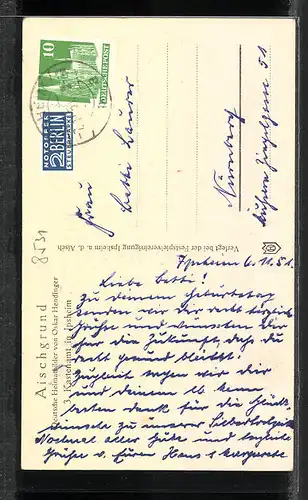 10
DEUTSCHE POST
NOTOPFER
2 BERLIN
STEUERMARKE
Frau
Betti Laurer
Nürnberg
51
8531
Aischgrund
Deutsche Heimatbilder von Oskar Herdfinger
3. Kantorat in Ipsheim
Verlegt bei der Festspielvereinigung Ipsheim a. d. Aisch
Ipsheim 6.11.51.
Liebe Betti!
Zu deinem Geburtstag
senden wir dir recht herzliche
Grüße und wünschen Dir
für die Zukunft, daß du
recht gesund bleibst.
Zugleich sagen wir dir
und deinem lb. Mann
besten Dank für die Glück-
wünsche zu unserer
Nochmal alles Gute und herzliche
Grüße v. Euren Hans u. Margarete